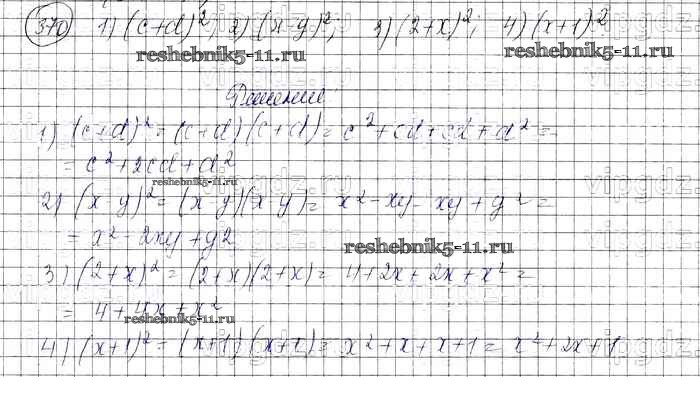 370 1) (c+d)²; 2) (x-y)²; 3) (2+x)²; 4) (x+1)²
reshebnik5-11.ru reshebnik5-11.ru
Решение
1) (c+d)² = (c+d)(c+d) = c² + cd + cd + d² =
= c² + 2cd + d²
reshebnik5-11.ru
2) (x-y)² = (x-y)(x-y) = x² - xy - xy + y² =
= x² - 2xy + y2
reshebnik5-11.ru
3) (2+x)² = (2+x)(2+x) = 4 + 2x + 2x + x² =
= 4 + 4x + x²
reshebnik5-11.ru
4) (x+1)² = (x+1)(x+1) = x² + x + x + 1 = x² + 2x + 1